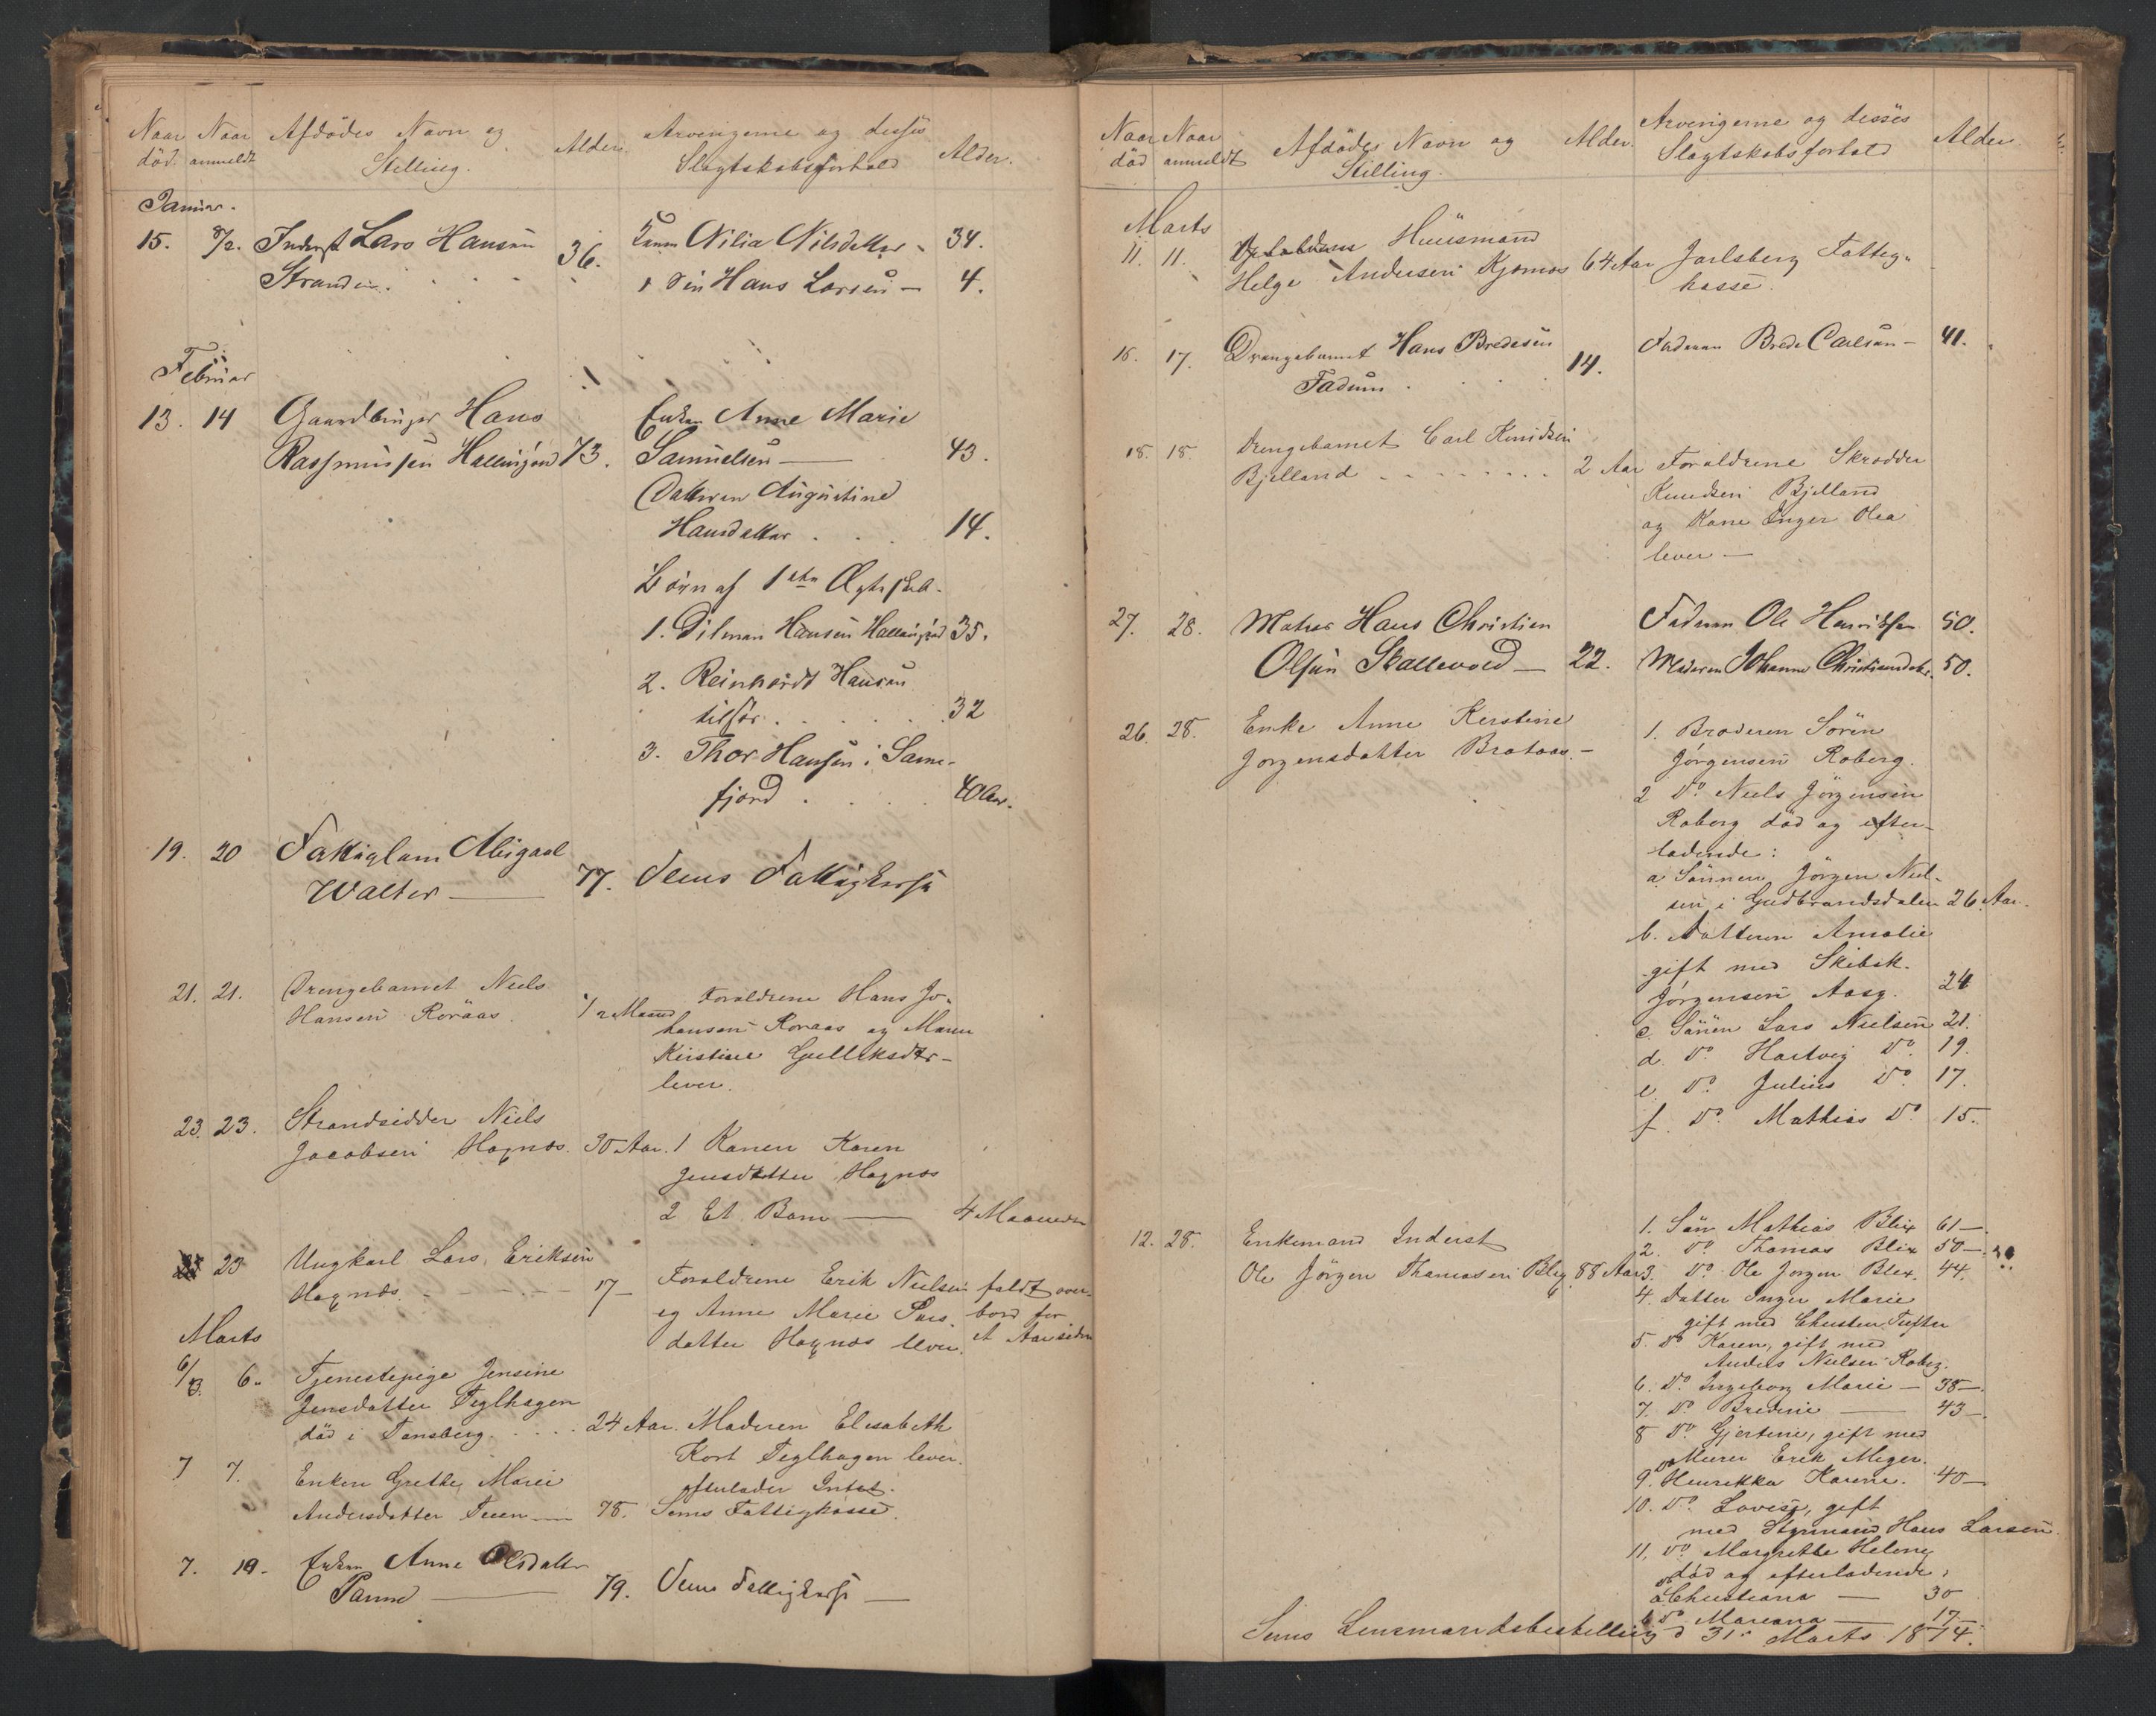 Naar Naar Afdödes Navn og Alder Arvingerne og disses Alder.
död. anmeldt Stilling. Slægtskabsforhold
Januar.
15. 8/2. Inderst Lars Hansen 36. Konen Nilia Nilsdatter 34.
Stranden. 1 Sön Hans Larsen — 4.
Februar
13. 14 Gaardbruger Hans Enken Anne Marie
Rasmussen Hallingsrød 73. Samuelsen — 43.
Datteren Augustine
Hansdatter . . . 14.
Börn af 1ste Ægteskab.
1. Hansen 35.
2. Reinhardt Hansen
tilsös . . . 32
3. Thor Hansen i Same-
fjord . . . 40 Aar.
19. 20 Fattiglem Abigael
Walter — 77. Sems Fattigkasse
21. 21. Drengebarnet Niels Foraldrene Hans Jo-
Hansen Roraas. 1/2 Maaned hansen Roraas og Maren
Kirstine Gulliksdtr-
lever.
23. 23. Strandsidder Niels
Jacobsen Hognæs. 30 Aar. 1 Konen Karen
Jensdatter Hognæs
2 Et Barn — 4 Maaneder
23 Ungkarl Lars Eriksen
Hognæs. 17 — Foraldrene Erik Nielsen faldt over-
og Anne Marie Lars- bord for
datter Hognæs lever. et Aar siden
Marts
6/3. 6. Tjenestepige Jensine
Jensdatter Teglhagen
död i Tønsberg. . . . 24 Aar. Moderen Elisabeth
Kort Teglhagen lever.
efterlader Intet.
7 7. Enken Grethe Marie
Andersdatter Teien — 78. Sems Fattigkasse.
7. 10. Enken Anne Olsdatter
79. Sems Fattigkasse —
Naar Naar Afdödes Navn og Alder. Arvingerne og disses Alder
död anmeldt Stilling. Slægtskabsforhold
Marts
11. 11. Huusmand
Helge Andersen Kjønnæs 64 Aar Jarlsberg Fattig-
kasse.
16. 17. Drengebarnet Hans Bredesen Faderen Brede Carlsen — 41.
Fadum . . . 14.
18. 18. Drengebarnet Carl Knudsen
Bjelland . . . 2 Aar Foraldrene Skrædder
Knudsen Bjelland
og Kone Inger Olea
lever —
27. 28. Matros Hans Christian Faderen Ole Henriksen 50.
Olsen Skallevold — 22. Moderen Johanne Christiansdtr. 50.
26. 28. Enke Anne Kirstine 1. Broderen Sören
Jorgensdatter Brataas. — Jörgensen Roberg.
2 Do Niels Jörgensen
Roberg död og efter-
ladende:
a. Sönnen Jörgen Niel-
sen i Gudbrandsdalen 26 Aar.
b. Datteren Amalie
gift med Skibsk.
Jörgensen Aasg. 24
c. Sönen Lars Nielsen 21.
d. Do Hartvig Do. 19.
e. Do Julius Do. 17.
f. Do Mathias Do 15.
12. 28. Enkemand Inderst 1. Sön Mathias Blix 61 —
2. Do Thomas Blix 50 —
Ole Jörgen Thomasen Blix 88 Aar 3. Do Ole Jorgen Blix. 44.
4. Datter Inger Marie
gift med Christen Tufter
5. Do Karen, gift med
Anders Nielsen Roberg.
6. Do Ingeborg Marie — 38 —
7. Do Bredine — 43 —
8 Do Gjertine, gift med
Murer Erik Meyer.
9. Do Henrikka Karene. 40 —
10. Do Lovise, gift
med Styrmand Hans Larsen.
11. Do Margrethe Helene
död og efterladende,
a. Do Christiana — 30
b. Do Mariana — 17 —
Sems Lensmandsbestilling d 31. Marts 1874.